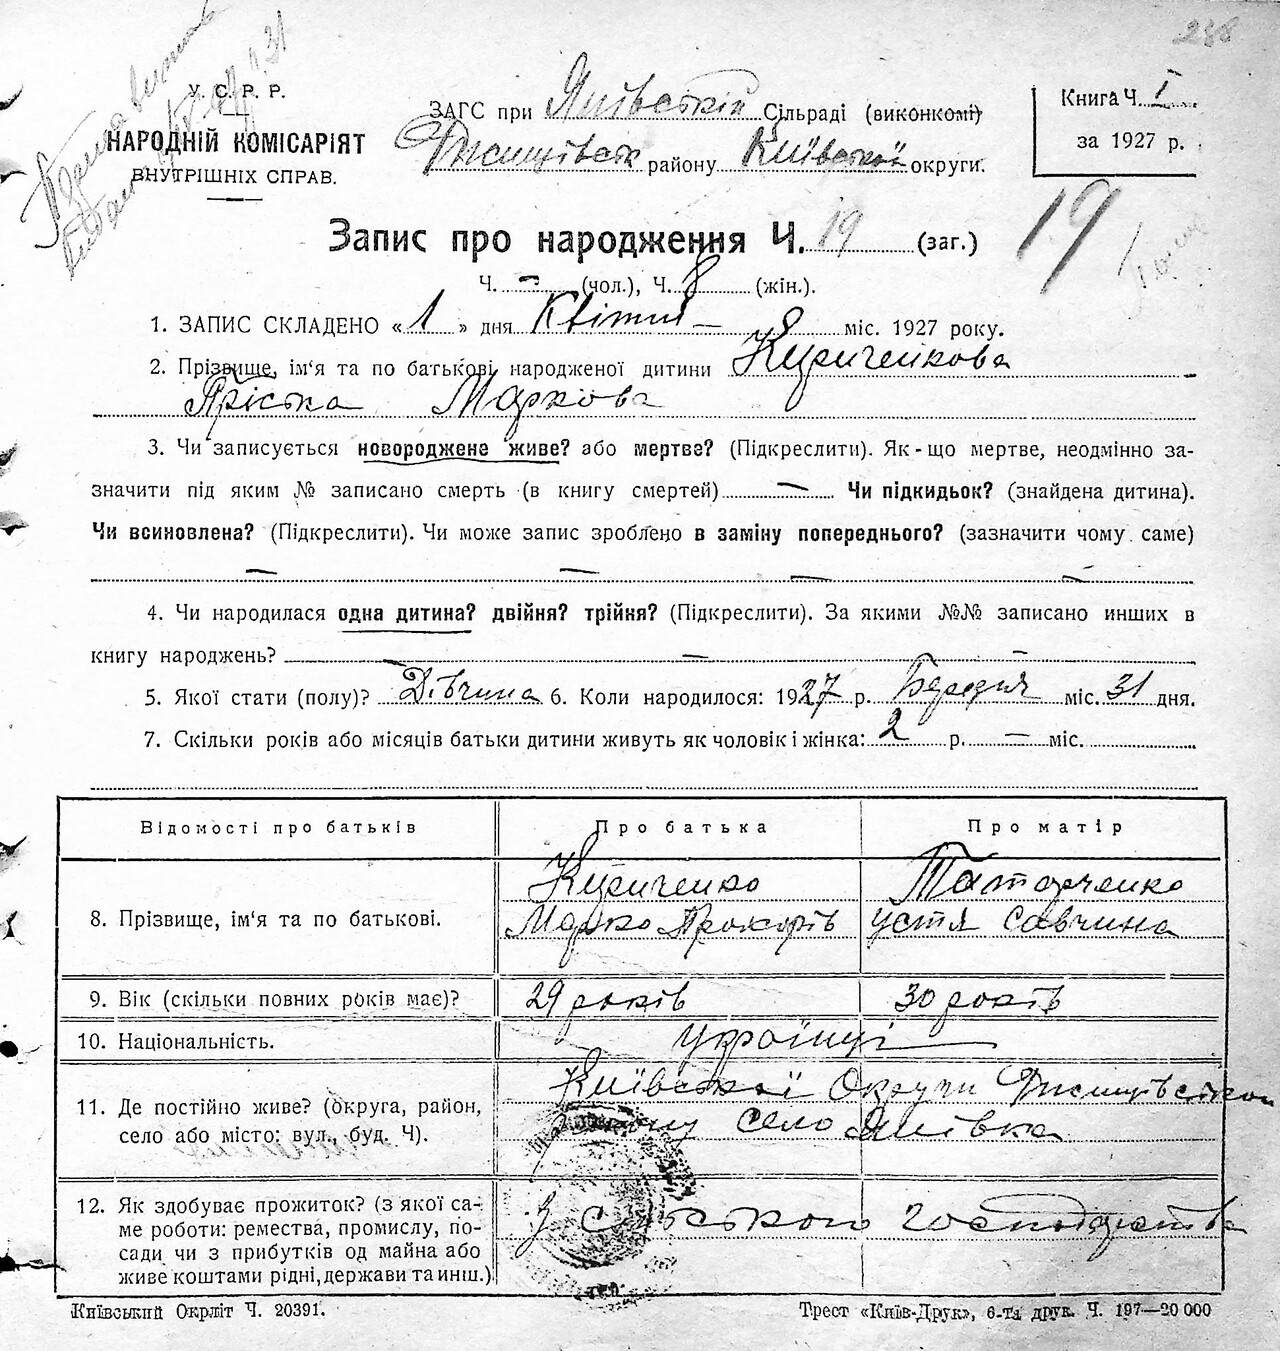 238
У. С. Р. Р.
НАРОДНІЙ КОМІСАРІЯТ
ВНУТРІШНІХ СПРАВ.
ЗАГС при Янівській Сільраді (виконкомі)
Ржищівськ району Київської округи.
Книга Ч. I
за 1927 р.
Запис про народження Ч. 19 (заг.)
19
Ч. – (чол.), Ч. 8 (жін.).
1. ЗАПИС СКЛАДЕНО «1» дня Квітня – міс. 1927 року.
2. Прізвище, ім'я та по батькові народженої дитини Кириченкова
Пріська Маркова
3. Чи записується новороджене живе? або мертве? (Підкреслити). Як-що мертве, неодмінно за-
значити під яким № записано смерть (в книгу смертей) — Чи підкидьок? (знайдена дитина).
Чи всиновлена? (Підкреслити). Чи може запис зроблено в заміну попереднього? (зазначити чому саме)
— — — —
4. Чи народилася одна дитина? двійня? трійня? (Підкреслити). За якими №№ записано инших в
книгу народжень? — — —
5. Якої стати (полу)? Дівчина 6. Коли народилося: 1927 р. Березня міс. 31 дня.
7. Скільки років або місяців батьки дитини живуть як чоловік і жінка: 2 р. — міс.
Відомості про батьків Про батька Про матір
Кириченко Татарченко
8. Прізвище, ім'я та по батькові. Марко Прокорів Устя Савчина
9. Вік (скільки повних років має)? 29 років 30 років
10. Національність. Українці
11. Де постійно живе? (округа, район, Київської Округи Ржищівського
село або місто: вул., буд. Ч). району село Янівка
12. Як здобуває прожиток? (з якої са-
ме роботи: ремества, промислу, по- З сільського господарства
сади чи з прибутків од майна або
живе коштами рідні, держави та инш.)
Київський Окрліт Ч. 20391.
Трест «Київ-Друк», 6-та друк. Ч. 197—20 000